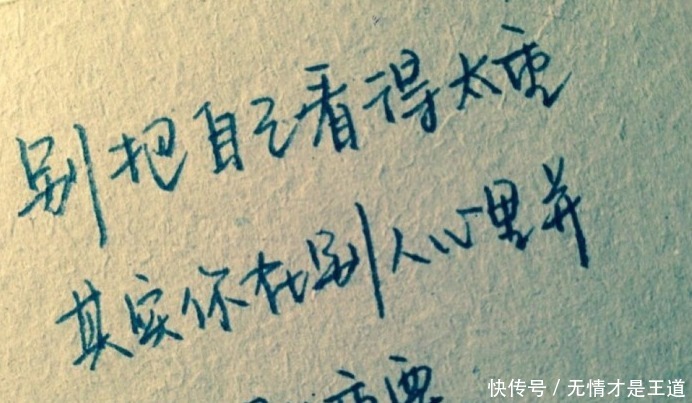 别把自己看得太重
其实你在别人心里并
重要
快传号/无情才是王道